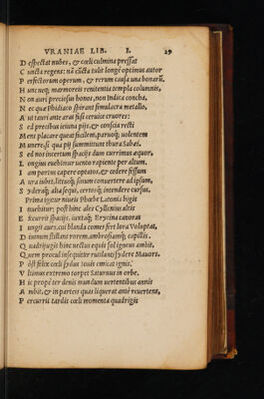 VRANIAE LIB. I. 29
D espectat nubes, & cœli culmina pressat
C uncta regens: nã cũcta tulit longè optimus autor
P erfectorum operum, & rerum causa una bonarũ,
H unc neq; marmoreis renitentia templa columnis,
N on auri preciosus honos, non Indica concha,
N ec quæ Phidiaco spirant simulacra metallo,
A ut tauri ante aras fusi ceruice cruores:
S ed precibus ieiuna pijs, & conscia recti
M ens placare queat facilem, paruoq; uolentem
M unere, si qua pij summittunt thura Sabæi.
S ed nos incertum spacijs dum currimus æquor,
L ongius euehimur uento rapiente per altum.
I am portus capere optatos, & cedere sessum
A ura iubet, littusq; sinum conuertere ad ipsum,
S yderaq; alta sequi, certosq; incendere cursus.
P rima igitur niueis Phœbe Latonis bigis
I nuehitur: post hinc ales Cyllenius altis
E xcurrit spacijs, iuxtaq; Erycina canoras
I ungit aues, cui blanda comes fert lora Voluptas,
D iuinum stillans rorem, ambrosiamq; capillis.
Q uadrijugis hinc uectus equis sol igneus ambit.
Q uem procul insequitur rutilans sydere Mauors.
P ost felix cœli sydus Iouis emicat ignis,
V ltimus extremo torpet Saturnus in orbe.
H ic propè ter denis mundum uertentibus annis
A mbit, & in parteis quas liquerat antè reuertens,
P ercurrit tardis cœli momenta quadrigis